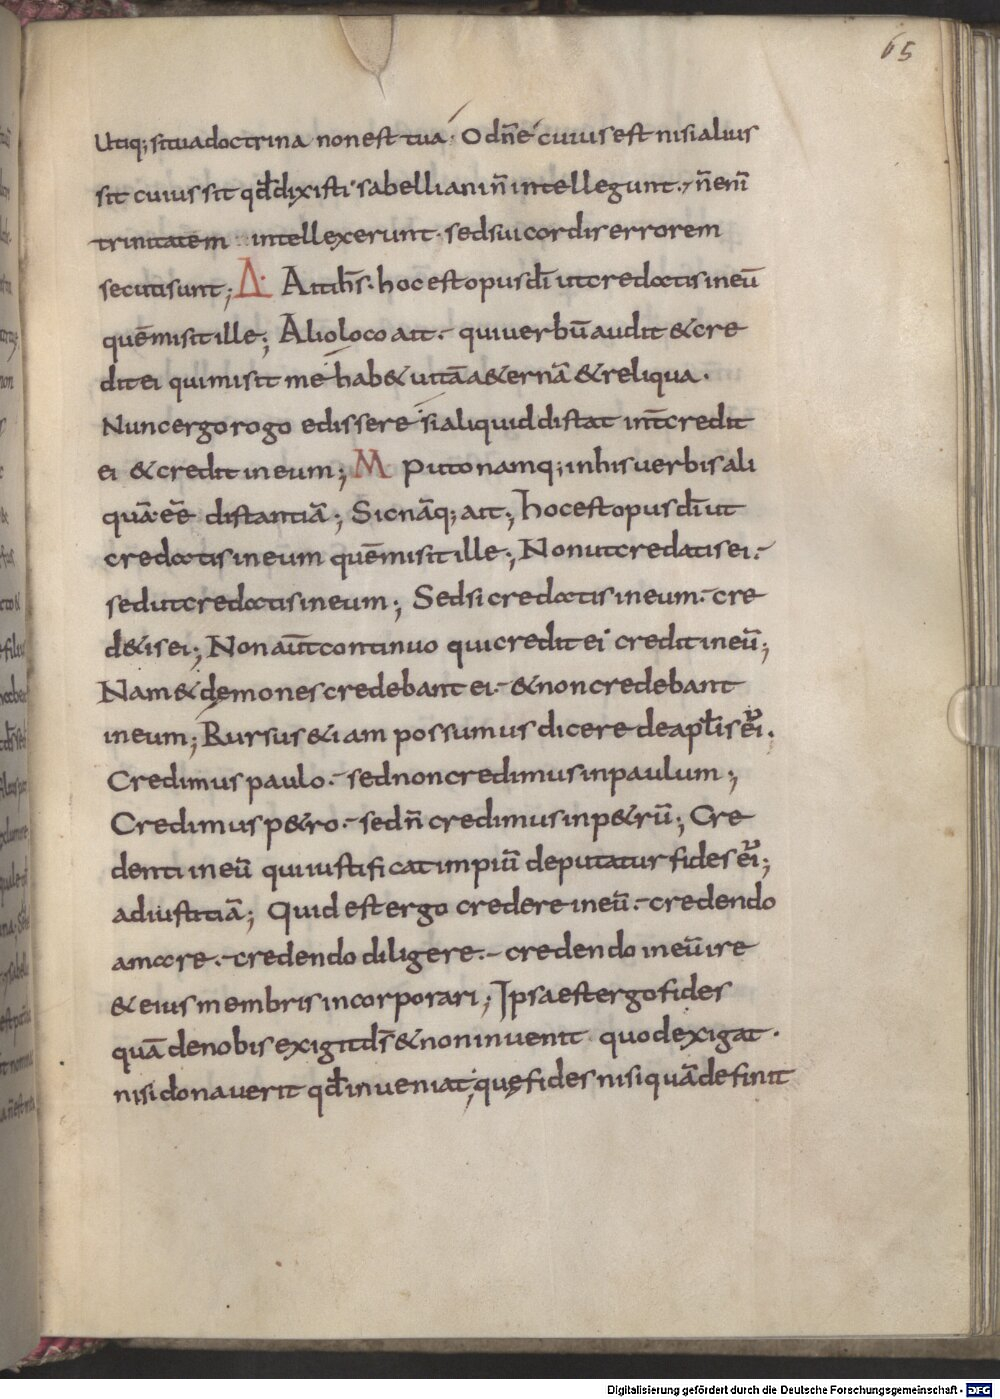 65
Utiq; si tua doctrina non est tua. O dñe cuius est nisi alius
sit cuius sit qđ dixisti sabelliani ñ intellegunt. ñ eni
trinitatem intellexerunt. sed sui cordis errorem
secuti sunt; Δ. Ait ihs. hoc est opus dī ut credatis in eū
quē misit ille; Alio loco ait. qui verbū audit & cre
dit ei qui misit me hab& vitā a&ernā & reliqua.
Nunc ergo rogo edissere si aliquid distat int̄ credit
ei & credit in eum; M Puto namq; in his verbis ali
quā eē distantiā; Sic nāq; ait; hoc est opus dī ut
credatis in eum quē misit ille; Non ut credatis ei.
sed ut credatis in eum; Sed si credatis in eum. cre
d&is ei; Non aūt continuo qui credit ei credit in eū;
Nam & demones credebant ei. & non credebant
in eum; Rursus &iam possumus dicere de apłis ei.
Credimus paulo. sed non credimus in paulum;
Credimus p&ro. sed ñ credimus in p&rū; Cre
denti in eū qui iustificat impiū deputatur fides ei;
ad iustitiā; Quid est ergo credere in eū. credendo
amare. credendo diligere. credendo in eū ire
& eius membris incorporari; Ipsa est ergo fides
quā de nobis exigit ds̄ & non invenit quod exigat.
nisi donaverit qđ inveniat; quę fides nisi quā definit
Digitalisierung gefördert durch die Deutsche Forschungsgemeinschaft - DFG